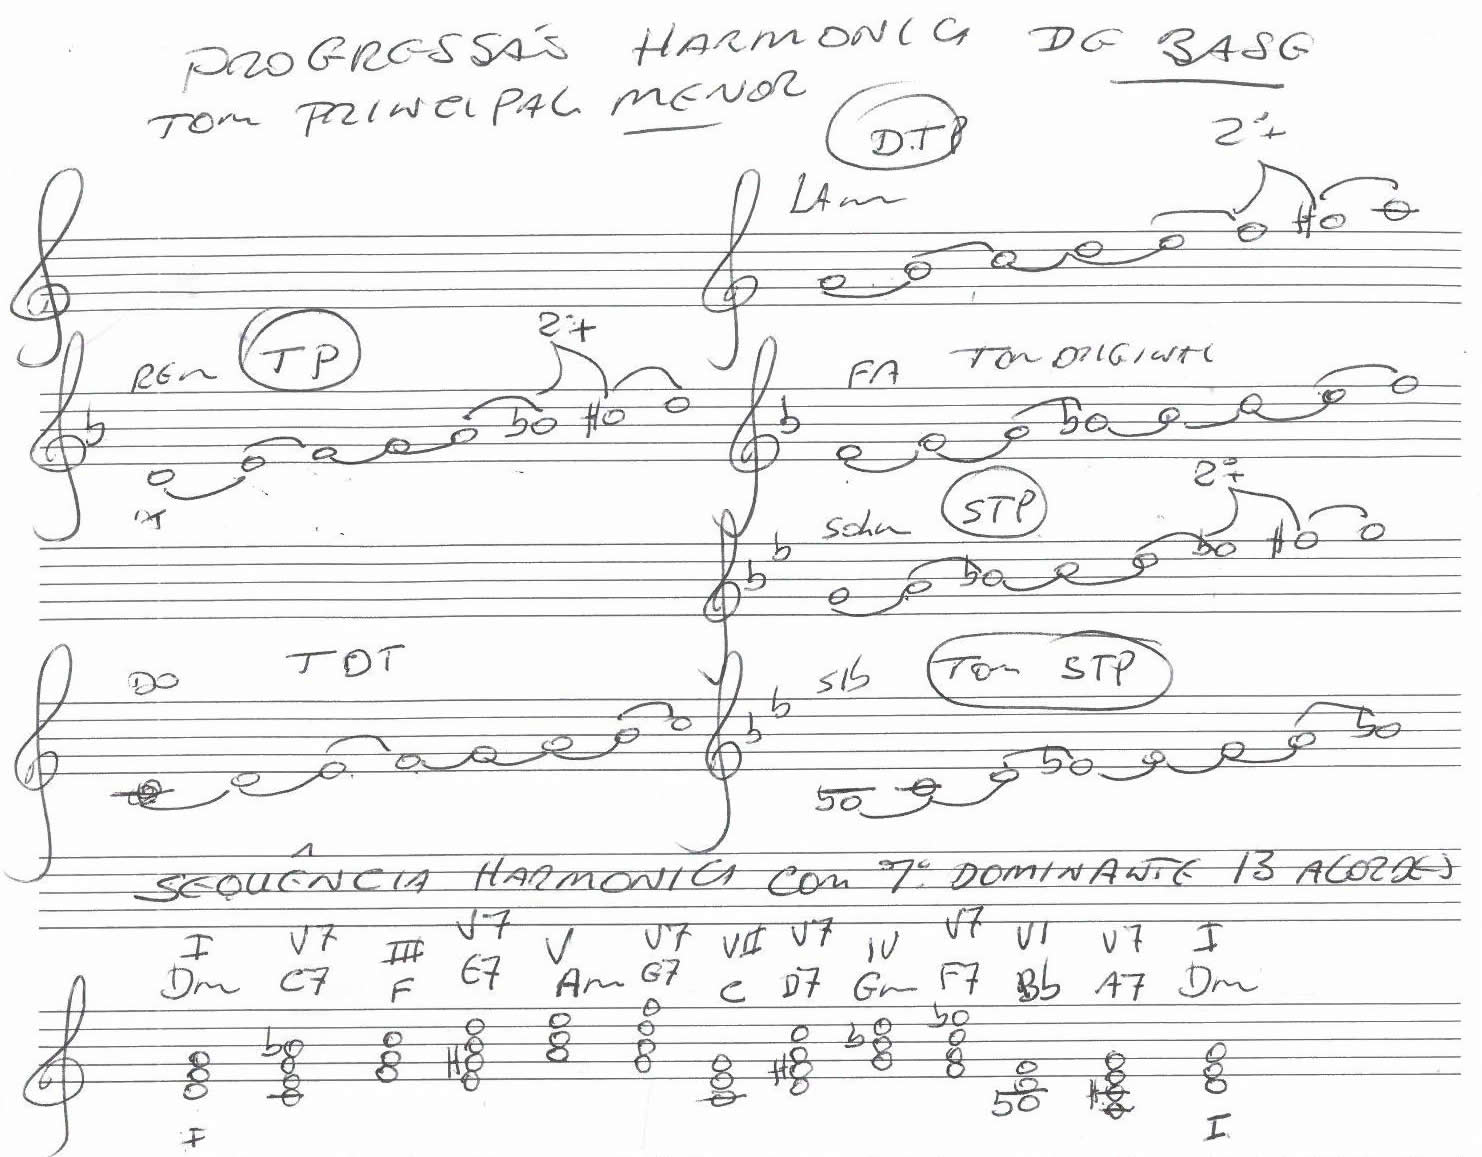 PROGRESSÃO HARMONICA DE BASE
TOM PRINCIPAL MENOR
DTP
2ª+
LAm
REm TP 2ª+
FA TOM ORIGINAL
SOLm STP 2ª+
DO TDT
SIb TOM STP
SEQUÊNCIA HARMONICA COM 7ª DOMINANTE 13 ACORDES
I V7 III V7 V V7 VII V7 IV V7 VI V7 I
Dm C7 F E7 Am G7 C D7 Gm F7 Bb A7 Dm
I I